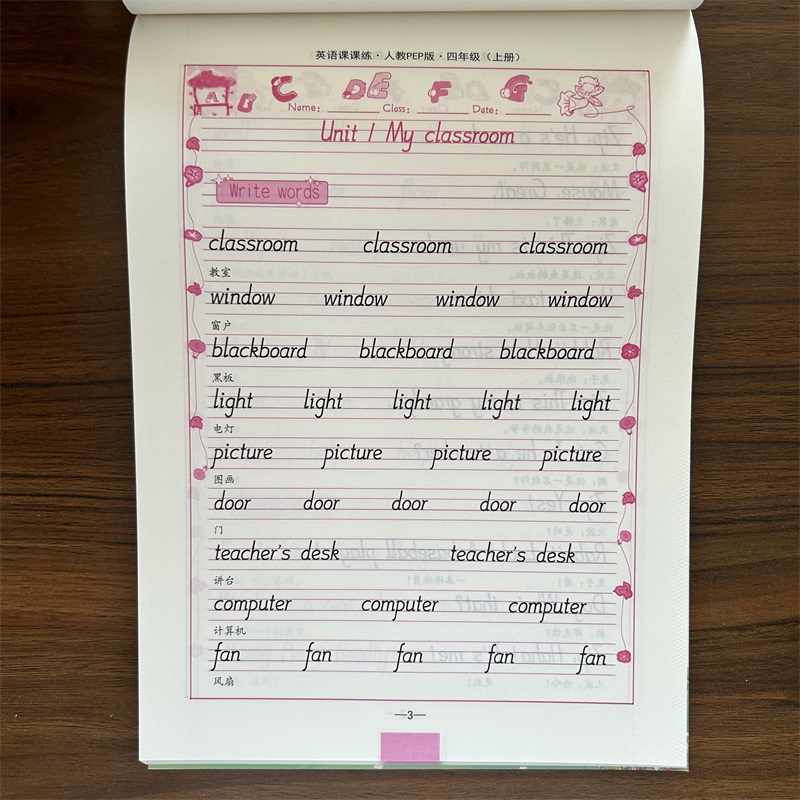 英语课课练·人教PEP版·四年级（上册）
A B C D E F G
Name: Class: Date:
Unit 1 My classroom
Write words
classroom classroom classroom
教室
window window window window
窗户
blackboard blackboard blackboard
黑板
light light light light light
电灯
picture picture picture picture
图画
door door door door door
门
teacher's desk teacher's desk
讲台
computer computer computer
计算机
fan fan fan fan fan
风扇
—3—